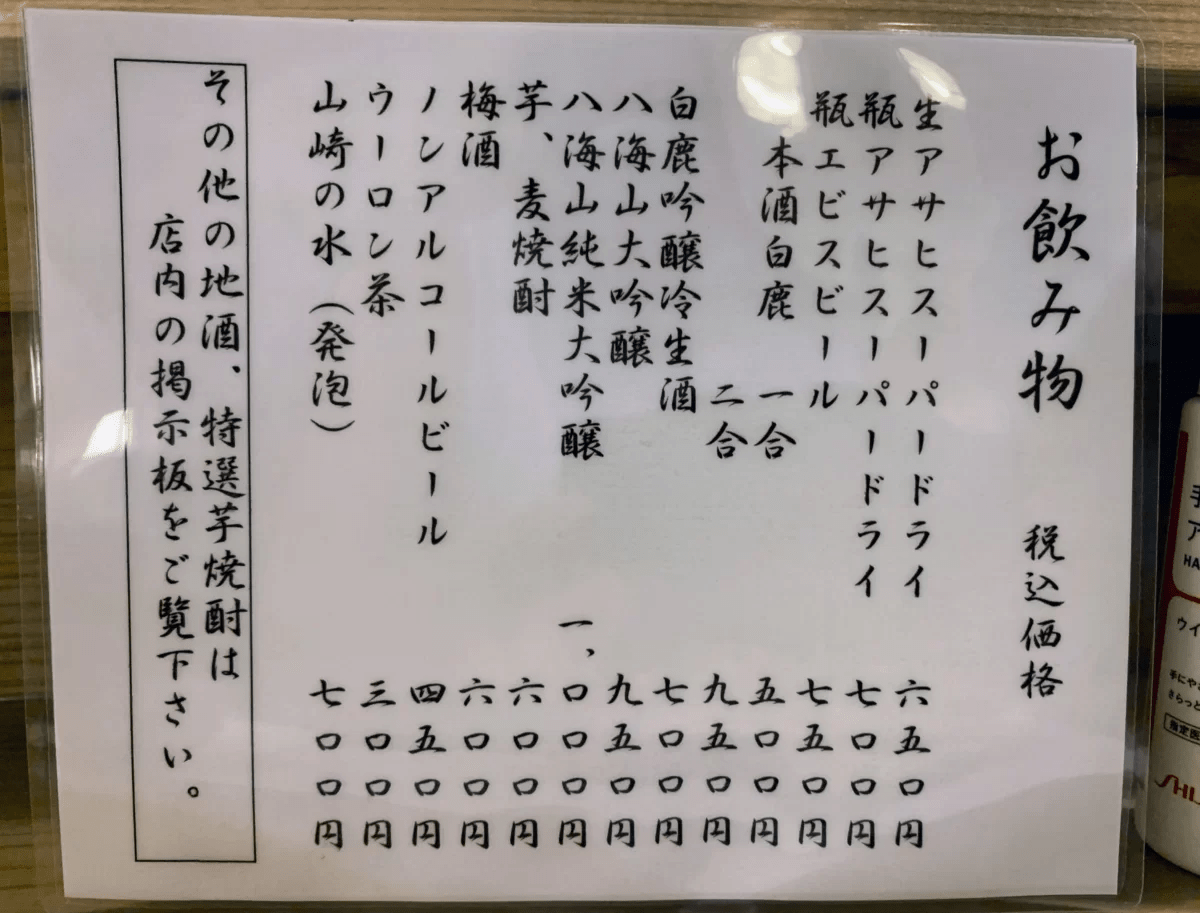 お飲み物　税込価格
生アサヒスーパードライ　六五〇円
瓶アサヒスーパードライ　七〇〇円
瓶エビスビール　七五〇円
本酒白鹿　一合　五〇〇円
二合　九五〇円
白鹿吟醸冷生酒　七〇〇円
八海山大吟醸　九五〇円
八海山純米大吟醸　一、〇〇〇円
芋、麦焼酎　六〇〇円
梅酒　六〇〇円
ノンアルコールビール　四五〇円
ウーロン茶　三〇〇円
山崎の水（発泡）　七〇〇円
その他の地酒、特選芋焼酎は
店内の掲示板をご覧下さい。
手
ア
HA
ウイ
手にやさ
さらっと
指定医
SHI